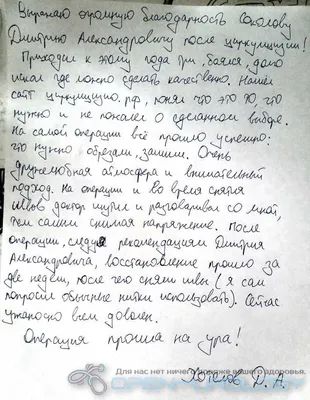 Выражаю огромную благодарность Соколову
Дмитрию Александровичу после циркумцизии!
Приходил к этому года три, боялся, долго
искал где можно сделать качественно. Нашёл
сайт циркумцизио.рф, понял что это то, что
нужно и не пожалел о сделанном выборе.
На самой операции всё прошло успешно:
что нужно обрезали, зашили. Очень
дружелюбная атмосфера и внимательный
подход. На операции и во время снятия
швов доктор шутил и разговаривал со мной,
тем самым снимая напряжение. После
операции, следуя рекомендациям Дмитрия
Александровича, восстановление прошло за
две недели, после чего сняли швы (я сам
попросил обычные нитки использовать). Сейчас
ужасно всем доволен.
Операция прошла на ура!
Для нас нет ничего дороже вашего здоровья.
Д. А.